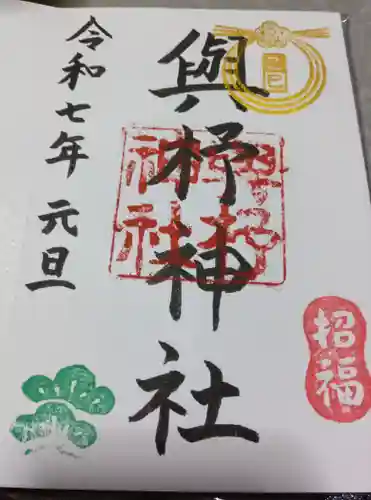 與杼神社
令和七年 元旦
與杼
神社
招福